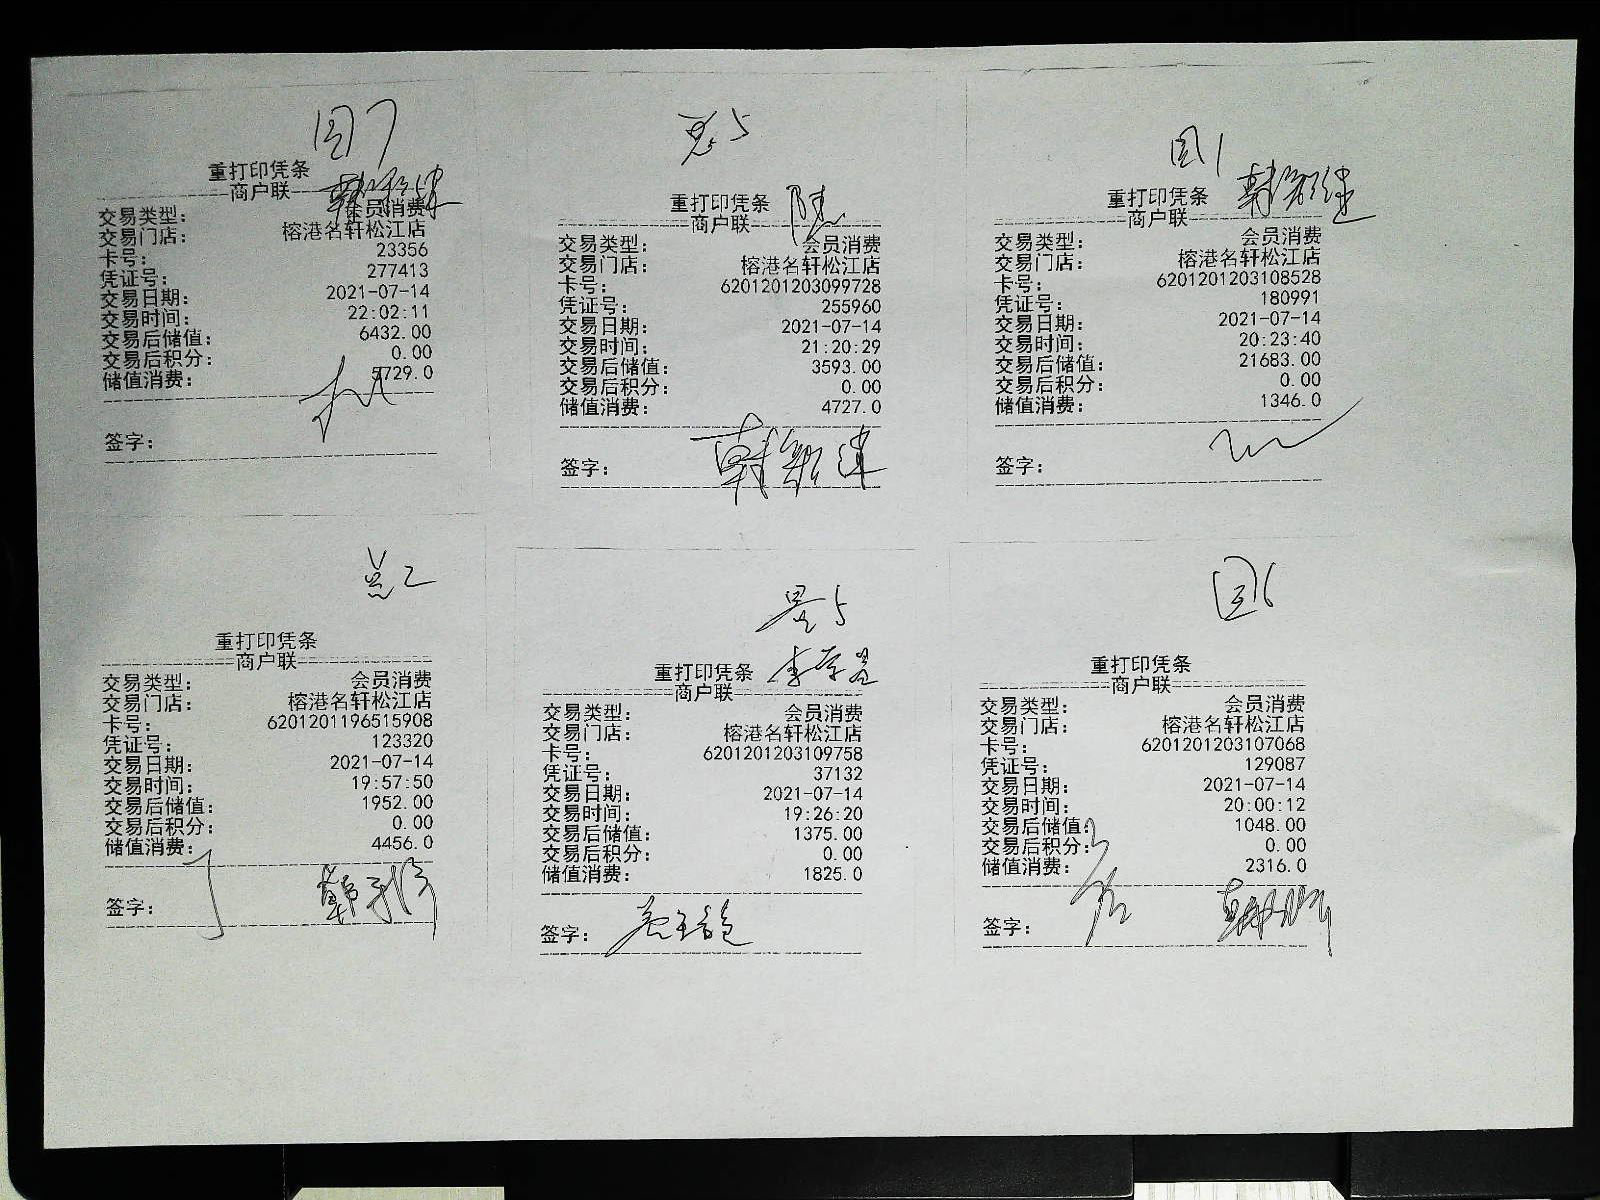 重打印凭条
商户联
交易类型： 会员消费
交易门店： 榕港名轩松江店
卡号： 23356
凭证号： 277413
交易日期： 2021-07-14
交易时间： 22:02:11
交易后储值： 6432.00
交易后积分： 0.00
储值消费： 5729.0
签字：
重打印凭条
商户联
交易类型： 会员消费
交易门店： 榕港名轩松江店
卡号： 6201201203099728
凭证号： 255960
交易日期： 2021-07-14
交易时间： 21:20:29
交易后储值： 3593.00
交易后积分： 0.00
储值消费： 4727.0
签字：
重打印凭条
商户联
交易类型： 会员消费
交易门店： 榕港名轩松江店
卡号： 6201201203108528
凭证号： 180991
交易日期： 2021-07-14
交易时间： 20:23:40
交易后储值： 21683.00
交易后积分： 0.00
储值消费： 1346.0
签字：
重打印凭条
商户联
交易类型： 会员消费
交易门店： 榕港名轩松江店
卡号： 6201201196515908
凭证号： 123320
交易日期： 2021-07-14
交易时间： 19:57:50
交易后储值： 1952.00
交易后积分： 0.00
储值消费： 4456.0
签字：
重打印凭条
商户联
交易类型： 会员消费
交易门店： 榕港名轩松江店
卡号： 6201201203109758
凭证号： 37132
交易日期： 2021-07-14
交易时间： 19:26:20
交易后储值： 1375.00
交易后积分： 0.00
储值消费： 1825.0
签字：
重打印凭条
商户联
交易类型： 会员消费
交易门店： 榕港名轩松江店
卡号： 6201201203107068
凭证号： 129087
交易日期： 2021-07-14
交易时间： 20:00:12
交易后储值： 1048.00
交易后积分： 0.00
储值消费： 2316.0
签字：